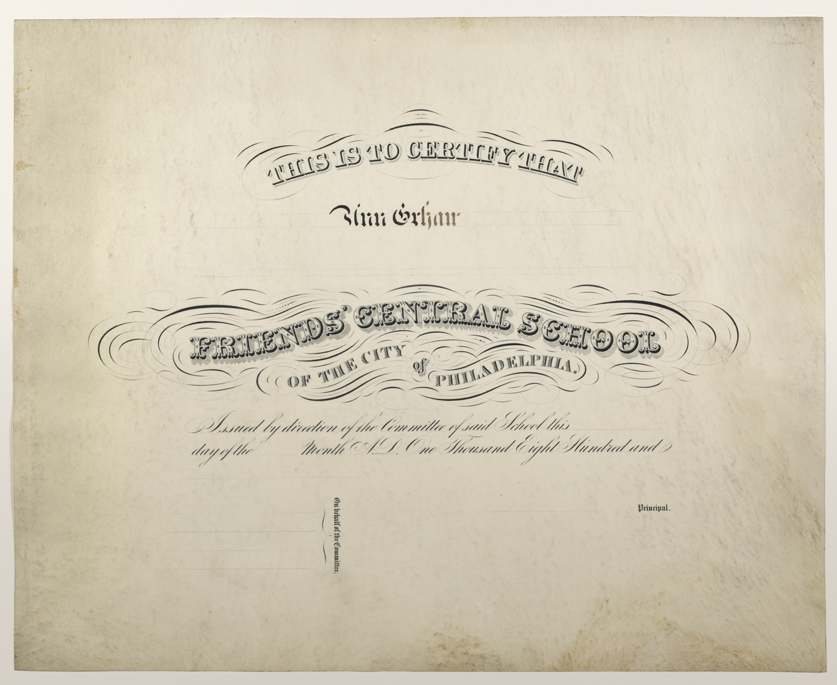 THIS IS TO CERTIFY THAT
Ann
FRIENDS' CENTRAL SCHOOL
OF THE CITY of PHILADELPHIA.
Issued by direction of the Committee of said School this
day of the Month A.D. One Thousand Eight Hundred and
On behalf of the Committee.
Principal.